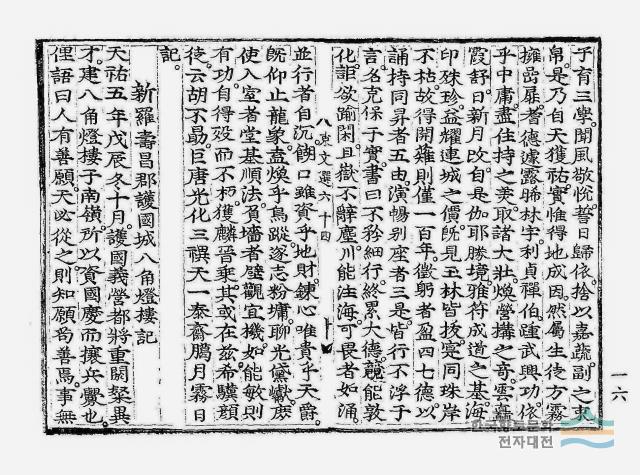 乎育三學聞風敬悅誓日歸依捨以嘉蔬副之束
帛是乃自天獲祐實惟得地成因然屬生徒方霧
擁嵓扉耆德遽露晞林宇利貞禪伯踵武興功依
乎中庸盡住持之美取諸大壯煥營搆之奇雲
霞舒日新月改自是伽耶勝境雅符成道之基海
印殊珍益耀連城之價旣見玉林皆拔寔同珠岸
不枯故得開薙則僅一百年徵躬者盈四七德以
誦持同昇者五由演暢別座者三是皆行不浮于
言名克保于實書曰不矜細行終累大德兢能敦
化詎欲踰閑且嶽不辭塵川能注海可畏者如涌
八 東文選六十四
並行者自沉餬口雖資乎地財鍊心唯貴乎天爵
旣仰止龍象盍煥乎鳥蹤遂志粉墉聊光黛巘庶
使入室者堂基順法負墻者壁觀宜機如能敏則
有功自得殁而不朽獲麟晉乘其或在茲希驥顔
徒云胡不勗巨唐光化三禩天一泰齋臘月霧日
記
新羅壽昌郡護國城八角燈樓記
天祐五年戊辰冬十月護國義營都將重閼粲異
才建八角燈樓于南嶺所以資國慶而攘兵釁也
俚語曰人有善願天必從之則知願苟善焉事無
一六
한국향토문화
전자대전